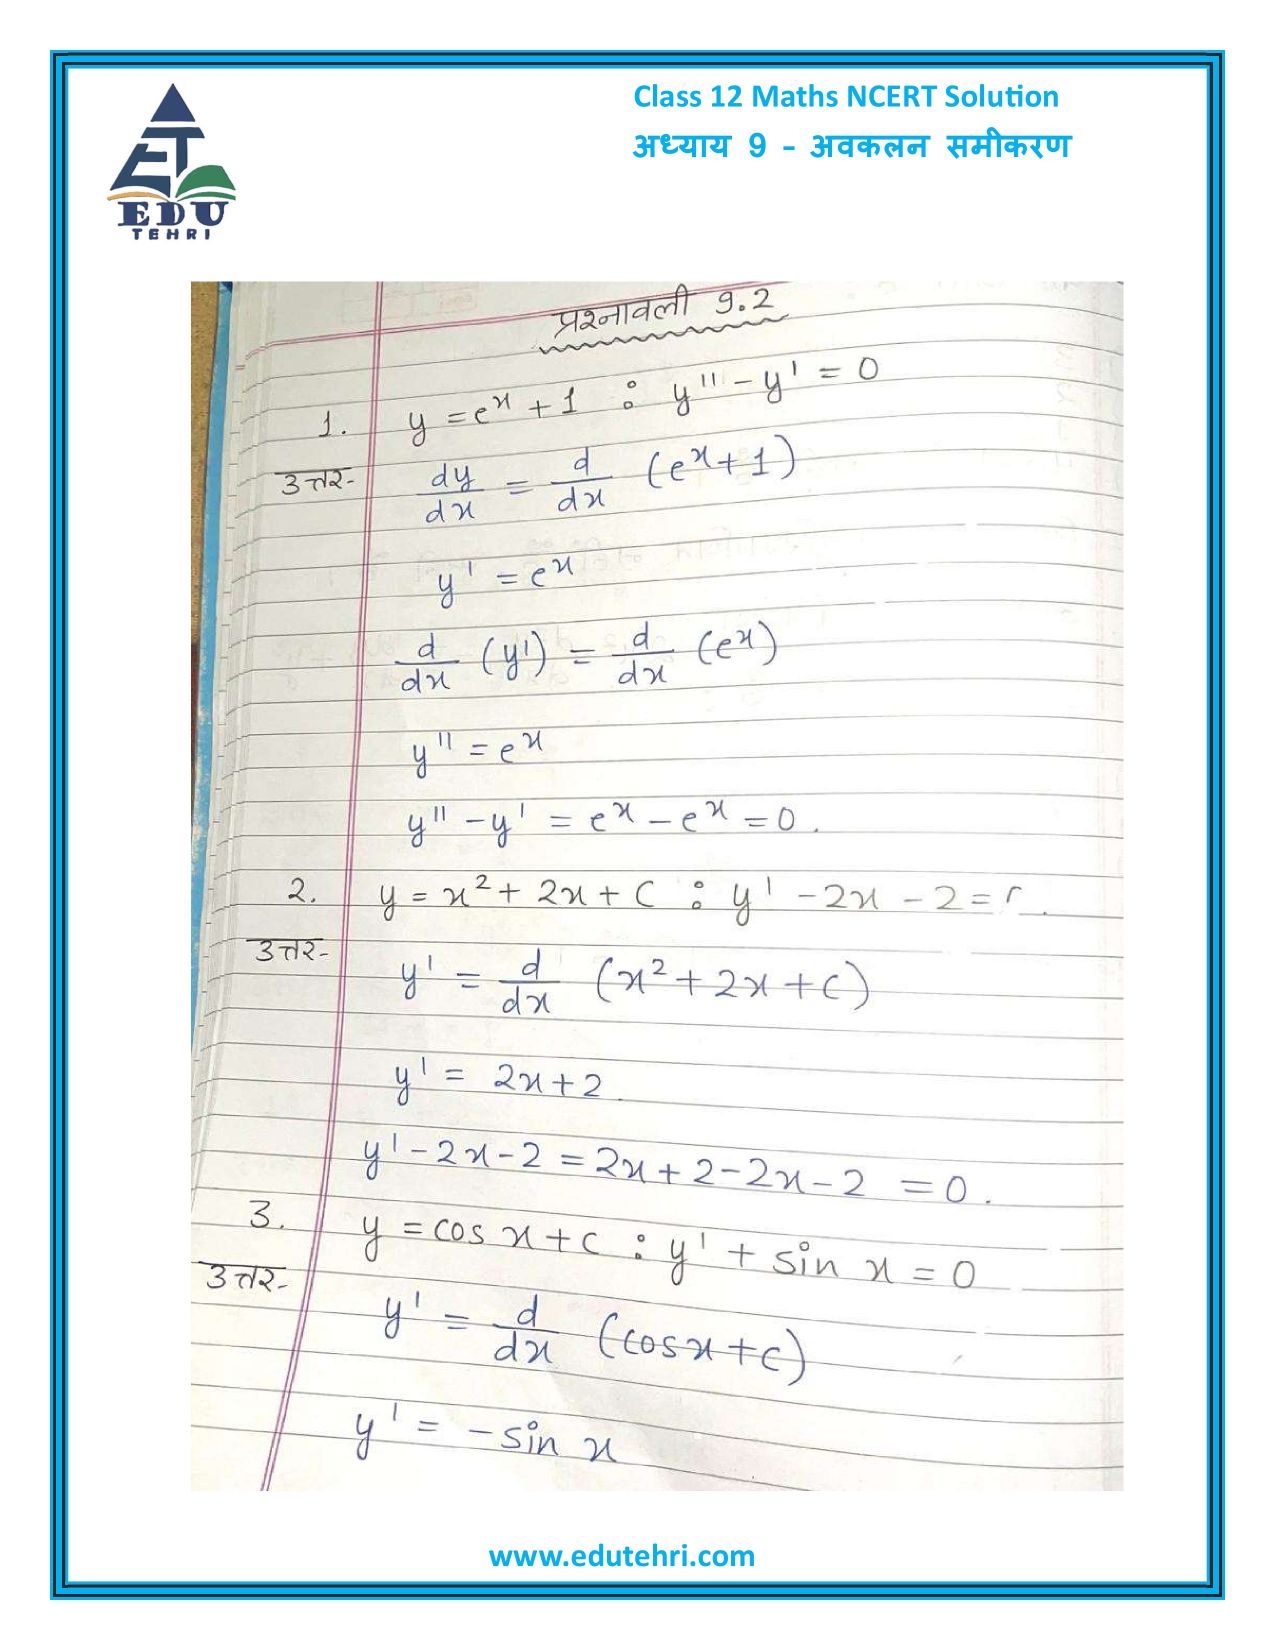 Class 12 Maths NCERT Solution
अध्याय 9 - अवकलन समीकरण
EDU
TEHRI
प्रश्नावली 9.2
1. y = eˣ + 1 : y'' - y' = 0
उत्तर- dy/dx = d/dx (eˣ + 1)
y' = eˣ
d/dx (y') = d/dx (eˣ)
y'' = eˣ
y'' - y' = eˣ - eˣ = 0.
2. y = x² + 2x + C : y' - 2x - 2 =
उत्तर- y' = d/dx (x² + 2x + C)
y' = 2x + 2.
y' - 2x - 2 = 2x + 2 - 2x - 2 = 0.
3. y = cos x + c : y' + sin x = 0
उत्तर- y' = d/dx (cos x + c)
y' = - sin x
www.edutehri.com